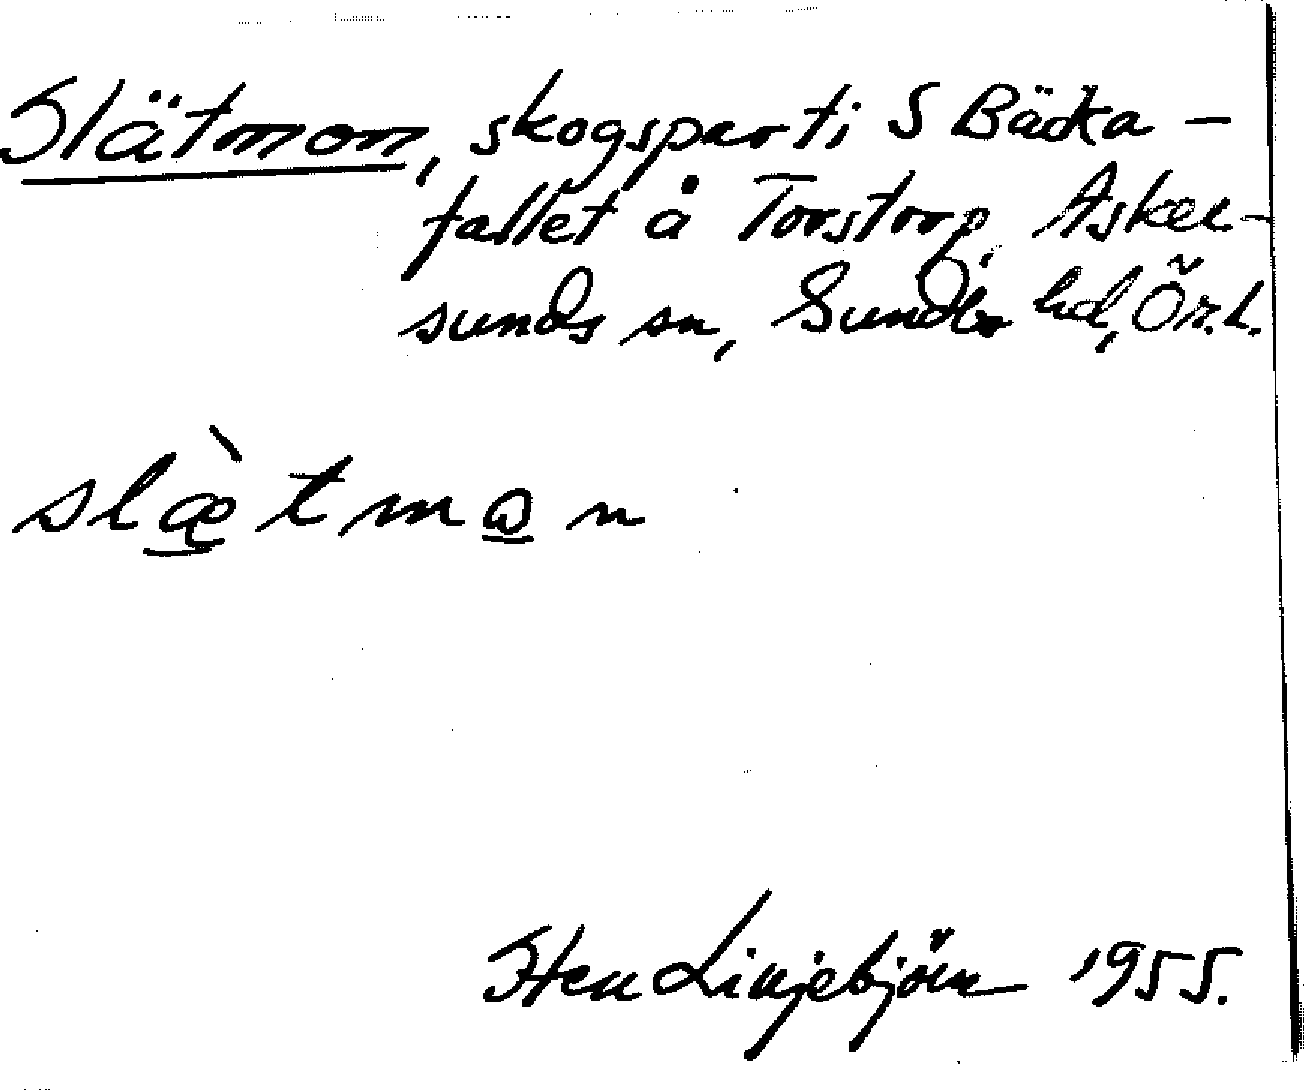 Slätmon, skogsparti S Bäcka-
fallet å Torstorp, Asker-
sunds sn, Sundbo hd, Ör.l.
slæ̀tmωn
Sten Liljebjörn 1955.